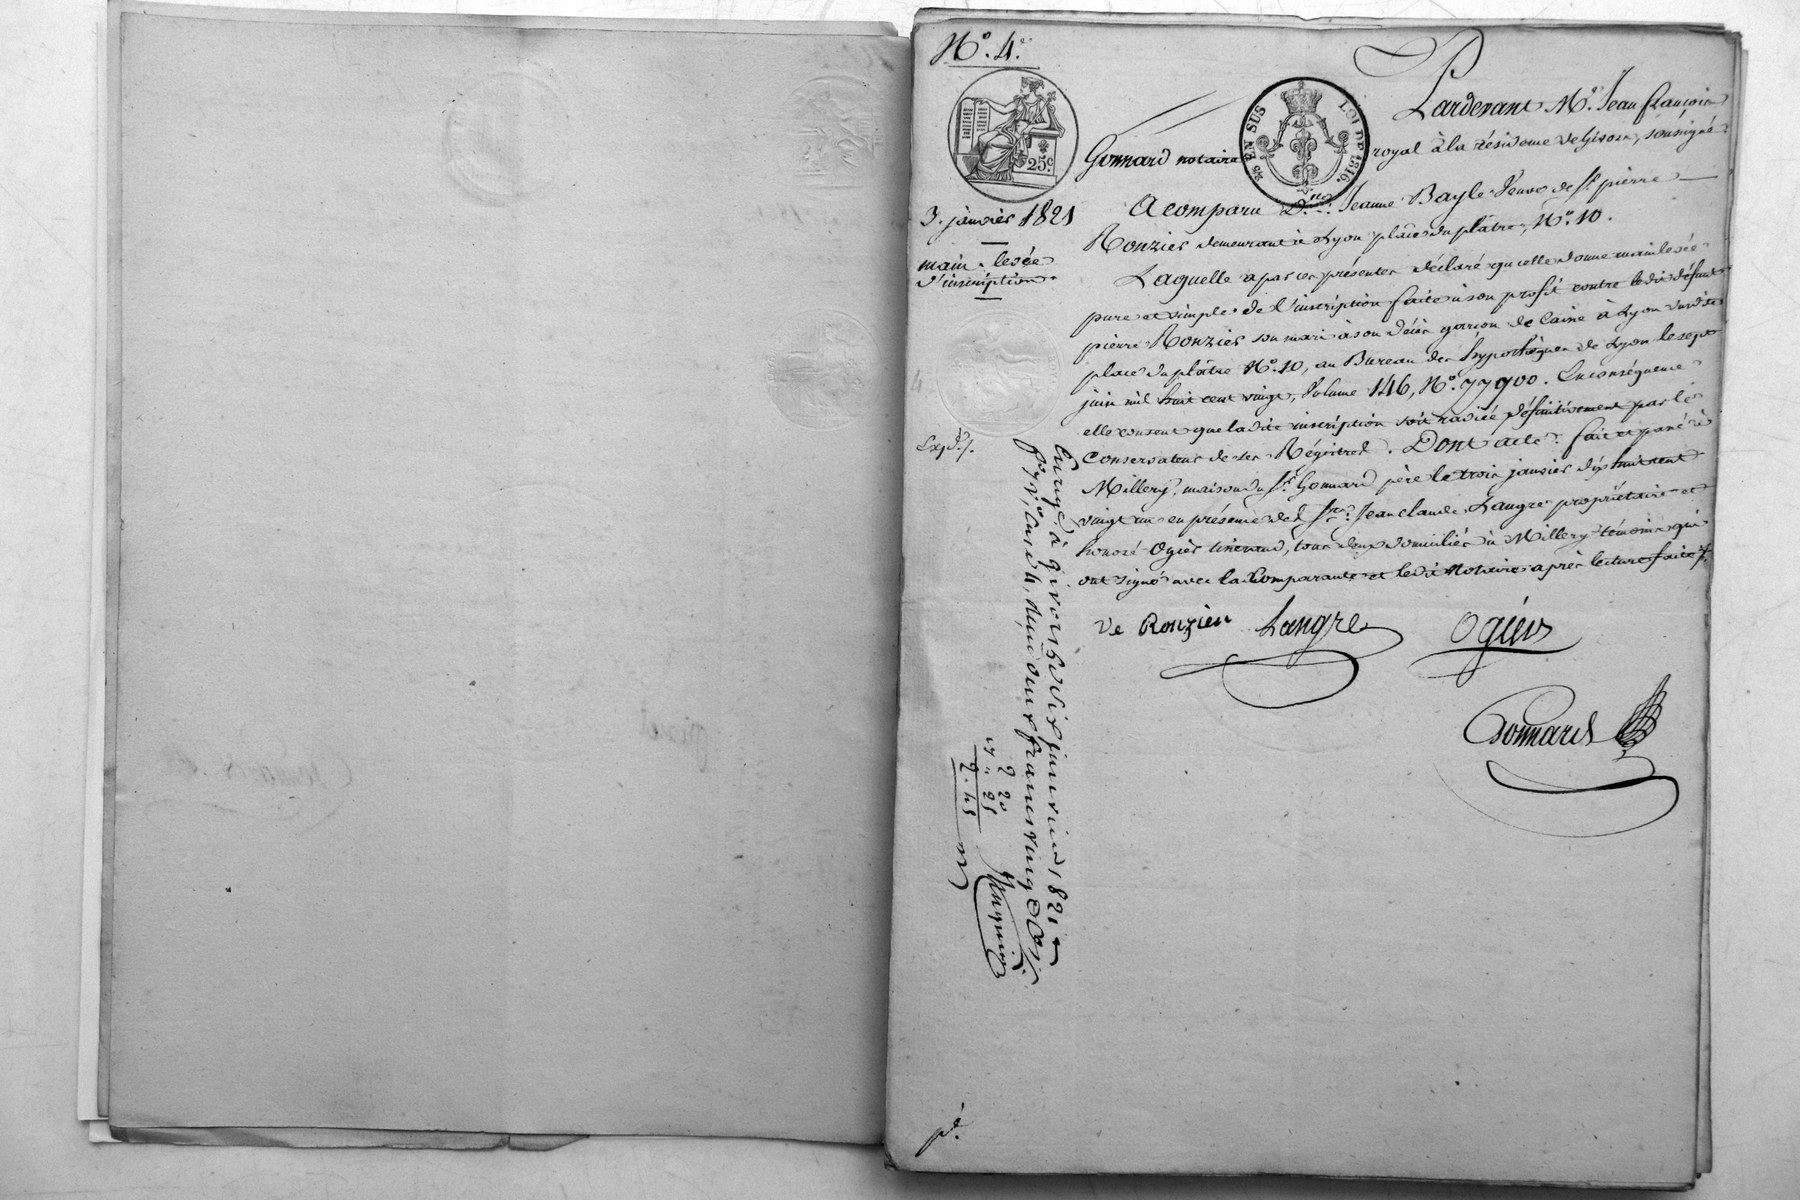 N.º 4.
25.c
5/10 EN SUS
LOI DE 1816.
3. janvier 1821
main-levée
d'inscription.
Expd.
Pardevant M.e Jean françois
Gonnard notaire royal à la résidence de Givors, soussigné
A comparu D.ne Jeanne Bayle Veuve de Sr. pierre
Ronzier demeurant à Lyon place du plâtre, N.º 10.
Laquelle a par ces présentes déclaré qu'elle donne mainlevée
pure et simple de l'inscription faite à son profit contre ledit défunt
pierre Ronzier son mari à son décès garçon de Caisse à Lyon susdite
place du plâtre N.º 10, au Bureau des hypothèques de Lyon le sept
juin mil huit cent vingt, Volume 146, N.º 77900. En conséquence
elle consent que ladite inscription soit radiée définitivement par le
Conservateur de ses Régistres. Dont acte. fait et passé à
Millery, maison du Sr. Gonnard père le trois janvier dix huit cent
vingt un en présence de Srs. Jean claude Langre propriétaire et
honoré Ogier tisserand, tous deux domiciliés à Millery témoins qui
ont signé avec la Comparante et ledit Notaire après lecture faite
ve Ronzier Langre Ogier
Gonnard
Enregé. à givors le dix janvier 1821
fo. 73, Case 4, reçu deux francs vingt Ces.
2 20
25
2. 45